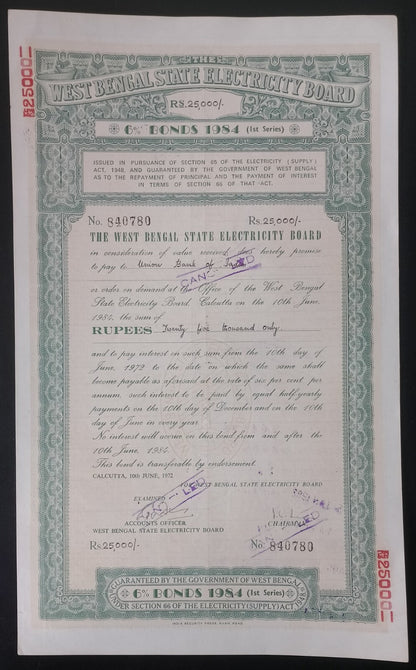 THE
WEST BENGAL STATE ELECTRICITY BOARD
RS.25,000/-
6% BONDS 1984 (1st Series)
ISSUED IN PURSUANCE OF SECTION 65 OF THE ELECTRICITY (SUPPLY)
ACT, 1948, AND GUARANTEED BY THE GOVERNMENT OF WEST BENGAL
AS TO THE REPAYMENT OF PRINCIPAL AND THE PAYMENT OF INTEREST
IN TERMS OF SECTION 66 OF THAT ACT.
No. 840780 Rs.25,000/-
THE WEST BENGAL STATE ELECTRICITY BOARD
in consideration of value received does hereby promise
to pay to Union Bank of
CANCELLED
or order on demand at the Office of the West Bengal
State Electricity Board, Calcutta on the 10th June,
1984, the sum of
RUPEES Twenty five thousand only.
and to pay interest on such sum from the 10th day of
June, 1972 to the date on which the same shall
become payable as aforesaid at the rate of six per cent per
annum, such interest to be paid by equal half-yearly
payments on the 10th day of December and on the 10th
day of June in every year.
No interest will accrue on this bond from and after the
10th June, 1984.
This bond is transferable by endorsement.
CALCUTTA, 10th JUNE, 1972
FOR WEST BENGAL STATE ELECTRICITY BOARD
EXAMINED
CANCELLED
ACCOUNTS OFFICER
WEST BENGAL STATE ELECTRICITY BOARD
CHAIRMAN
Rs.25,000/- No. 840780
GUARANTEED BY THE GOVERNMENT OF WEST BENGAL
6% BONDS 1984 (1st Series)
UNDER SECTION 66 OF THE ELECTRICITY (SUPPLY) ACT
INDIA SECURITY PRESS, NASIK ROAD
25000
25000